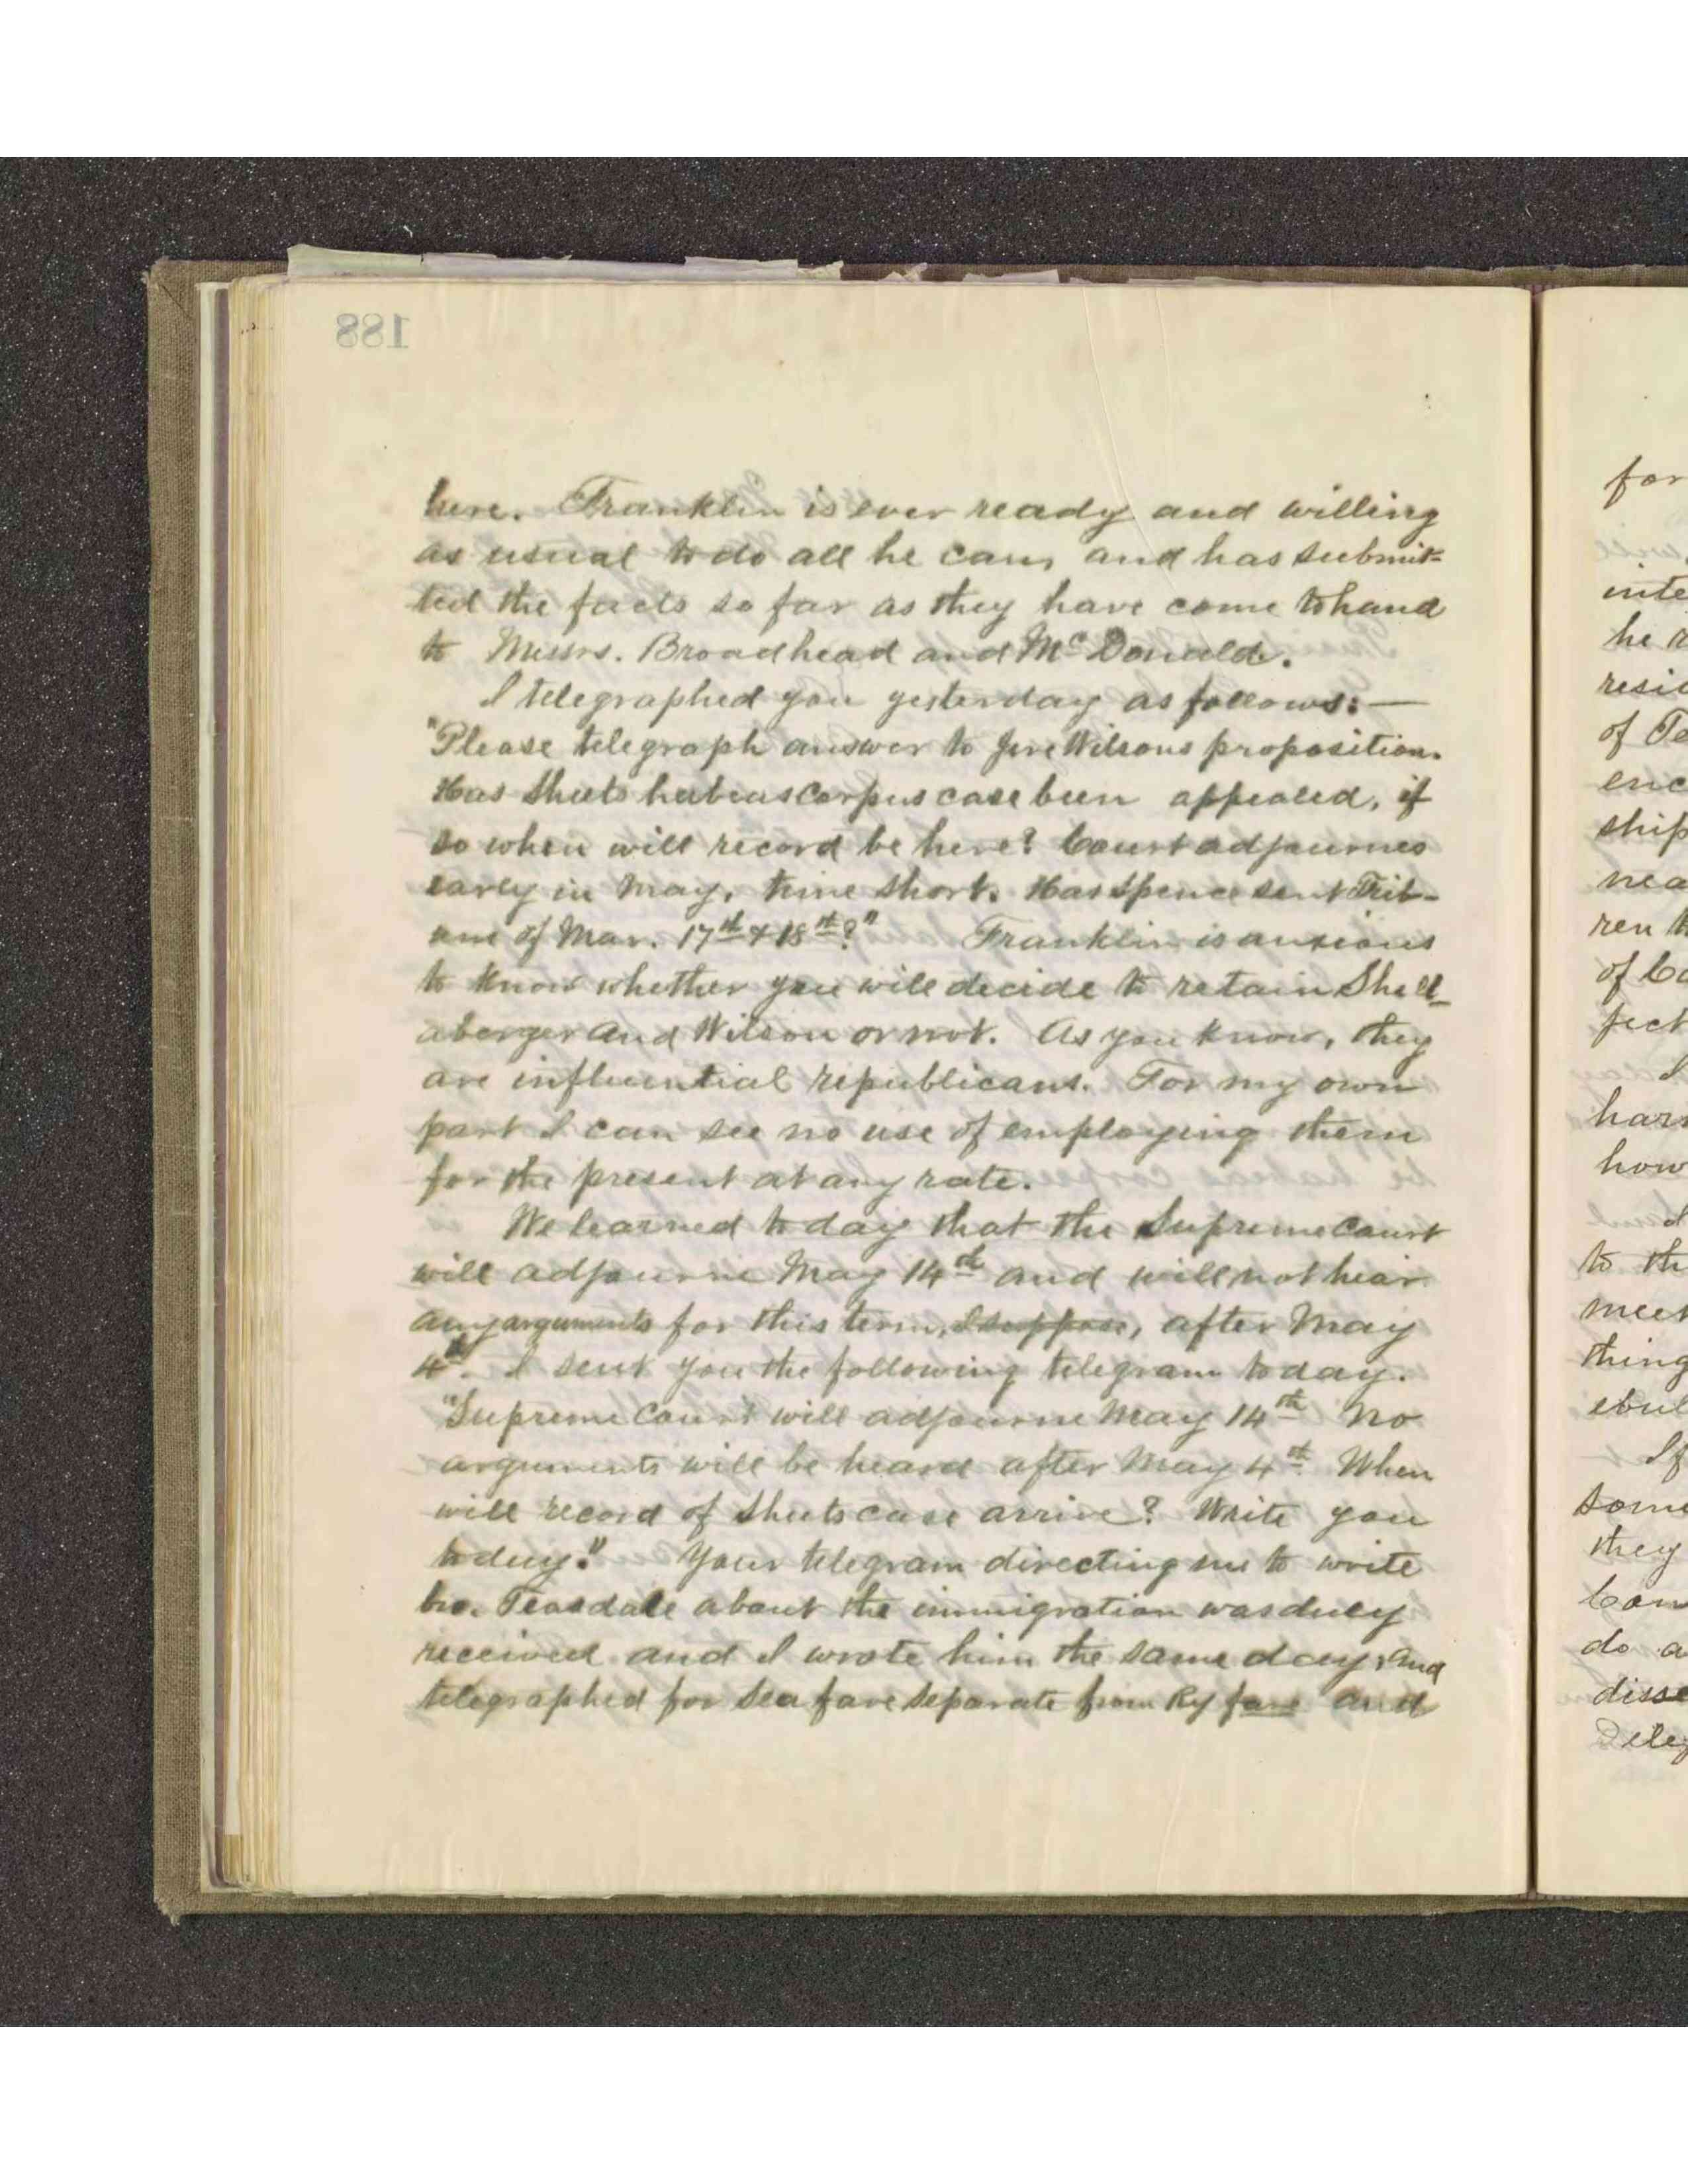 188
here. Franklin is ever ready and willing
as usual to do all he can, and has submit-
ted the facts so far as they have come to hand
to Messrs. Broadhead and McDonald.
I telegraphed you yesterday as follows:—
"Please telegraph answer to Jere Wilsons proposition.
Has Sheets habeas corpus case been appealed, if
so when will record be here? Court adjournes
early in May, time short. Has Spence sent Trib-
une of Mar. 17th & 18th?" Franklin is anxious
to know whether you will decide to retain Shell-
aberger and Wilson or not. As you know, they
are influential republicans. For my own
part I can see no use of employing them
for the present at any rate.
We learned today that the Supreme Court
will adjourne May 14th and will not hear
any arguments for this term, I suppose, after May
4th. I sent you the following telegram today.
"Supreme Court will adjourne May 14th No
arguments will be heard after May 4th When
will record of Sheets case arrive? Write you
today." Your telegram directing me to write
bro. Teasdale about the immigration was duly
received and I wrote him the same day, and
telegraphed for sea fare separate from Ry fare and
for
inte
he r
resid
of Te
enc
ship
nea
ren t
of Co
fect
I
harm
how
I
to th
meet
thing
ebul
If
some
they
Com
do a
disse
Deleg